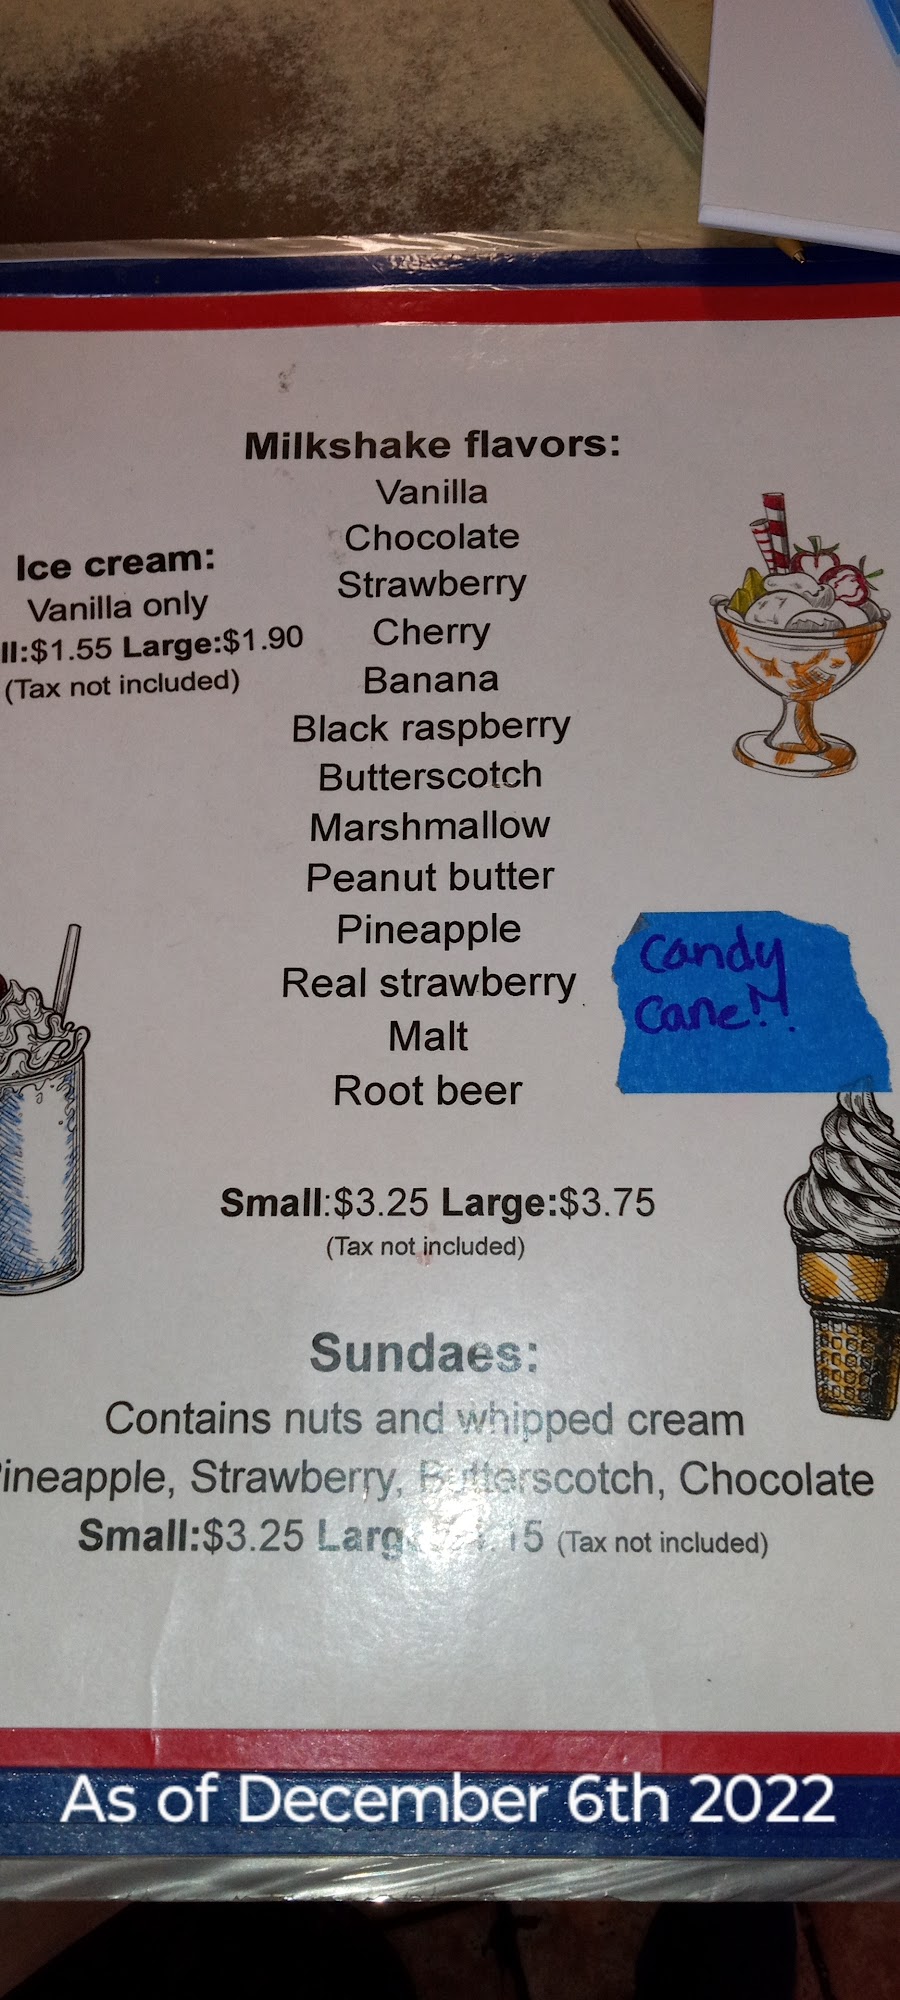 Milkshake flavors:
Vanilla
Chocolate
Strawberry
Cherry
Banana
Black raspberry
Butterscotch
Marshmallow
Peanut butter
Pineapple
Real strawberry
Malt
Root beer
Small:$3.25 Large:$3.75
(Tax not included)
Ice cream:
Vanilla only
ll:$1.55 Large:$1.90
(Tax not included)
Candy
Cane!!
Sundaes:
Contains nuts and whipped cream
ineapple, Strawberry, Butterscotch, Chocolate
Small:$3.25 (Tax not included)
As of December 6th 2022